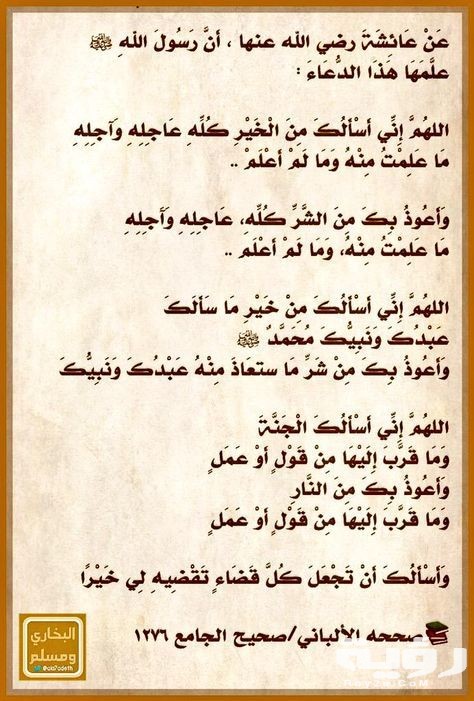 عَنْ عَائشةَ رضي الله عنها ، أنَّ رَسُولَ اللهِ ﷺ
علَّمَهَا هَذَا الدُّعَاءَ :
اللهُمَّ إِنِّي أسْأَلُكَ مِنَ الْخَيْرِ كُلِّهِ عَاجِلِهِ وَآجِلِهِ
مَا عَلِمْتُ مِنْهُ وَمَا لَمْ أعْلَمْ ..
وَأعُوذُ بِكَ مِنَ الشَّرِّ كُلِّهِ، عَاجِلِهِ وَآجِلِهِ
مَا عَلِمْتُ مِنْهُ، وَمَا لَمْ أعْلَم ..
اللهُمَّ إِنِّي أسْأَلُكَ مِنْ خَيْرِ مَا سَأَلَكَ
عَبْدُكَ وَنَبِيُّكَ مُحَمَّدٌ ﷺ
وَأعُوذُ بِكَ مِنْ شَرِّ مَا ستعَاذَ مِنْهُ عَبْدُكَ وَنَبِيُّكَ
اللهُمَّ إِنِّي أسْأَلُكَ الْجَنَّةَ
وَمَا قَرَّبَ إِلَيْهَا مِنْ قَوْلٍ أوْ عَمَلٍ
وَأعُوذُ بِكَ مِنَ النَّارِ
وَمَا قَرَّبَ إِلَيْهَا مِنْ قَوْلٍ أوْ عَمَلٍ
وَأسْأَلُكَ أنْ تَجْعَلَ كُلَّ قَضَاءٍ تَقْضِيهِ لِي خَيْرًا
صححه الألباني/صحيح الجامع ١٢٧٦
البخاري
ومسلم
رؤية